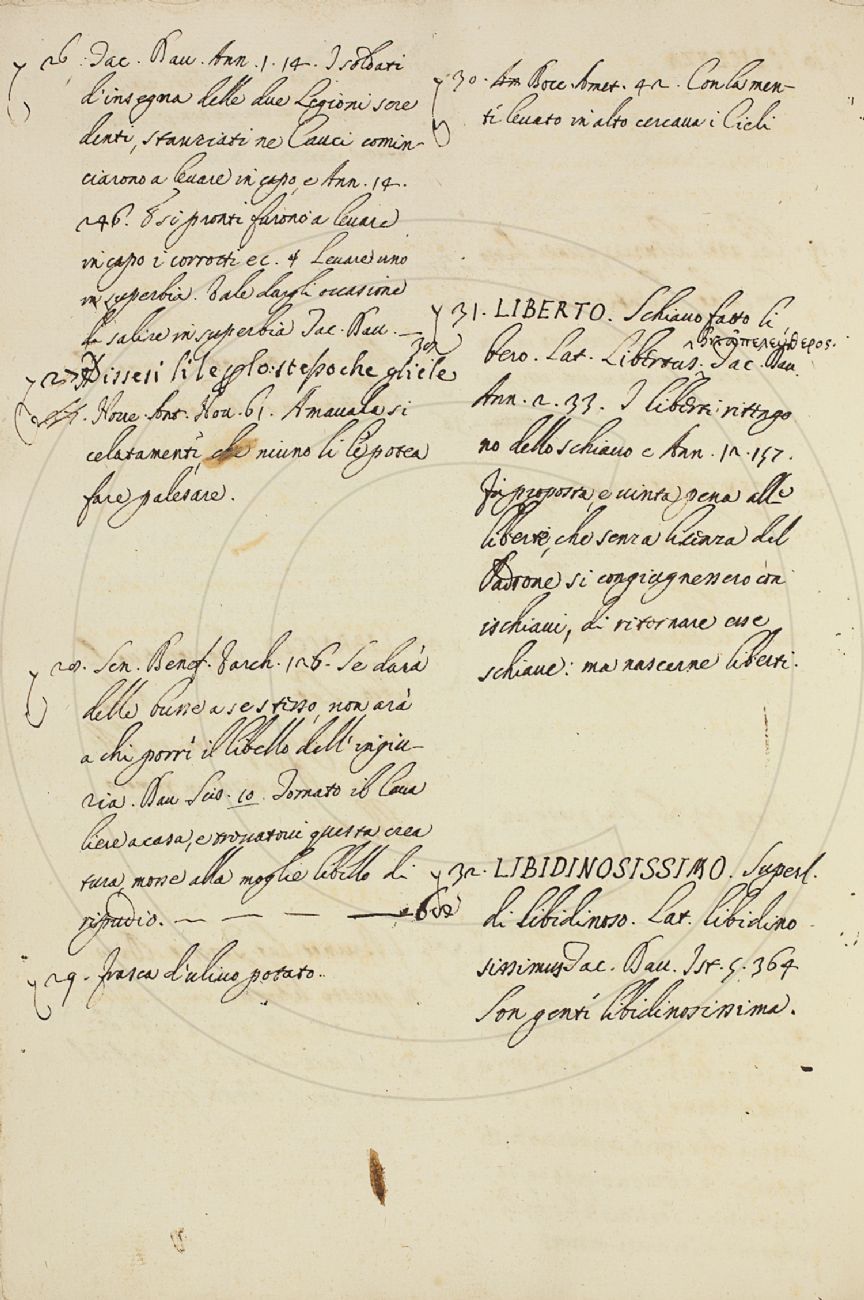 26. Tac. Dav. Ann. 1. 14. I soldati
d'insegna delle due Legioni scre
denti, stanziati ne Cauci comin-
ciarono a levare in capo, e Ann. 14.
246. E si pronti furono a levare
in capo i corrotti ec. Levare uno
in superbia. Vale dargli occasione
di salire in superbia Tac. Dav. —
27. Dissesi li le, glo. ste poche gliele
Nove. Ant. Nov. 61. Amavala si
celatamente, che niuno li le potea
fare palesare.
28. Sen. Benef. Varch. 126. Se darà
delle busse a se stesso, non arà
a chi porre il libello dell'ingiu-
ria. Dav Scis. 10. Tornato il Cava
liere a casa, e trovatovi questa crea
tura, mosse alla moglie libello di
ripudio. — — — —
29. frasca d'ulivo potato.
30. Bocc. Amet. 42. Con la men-
te levato in alto cercava i Cieli
31. LIBERTO. Schiavo fatto li
ἀπελεύθερος.
bero. Lat. Libertus. Tac. Dav.
Ann. 2. 33. I liberti ritengo
no dello schiavo e Ann. 12. 157.
Fu proposta, e vinta pena alle
liberte, che senza licenza del
Padrone si congiugnessero con
ischiavi, di ritornare esse
schiave: ma nascerne liberti.
32. LIBIDINOSISSIMO. Superl.
di libidinoso. Lat. libidino
sissimus Tac. Dav. Ist. 5. 364
Son genti libidinosissima.